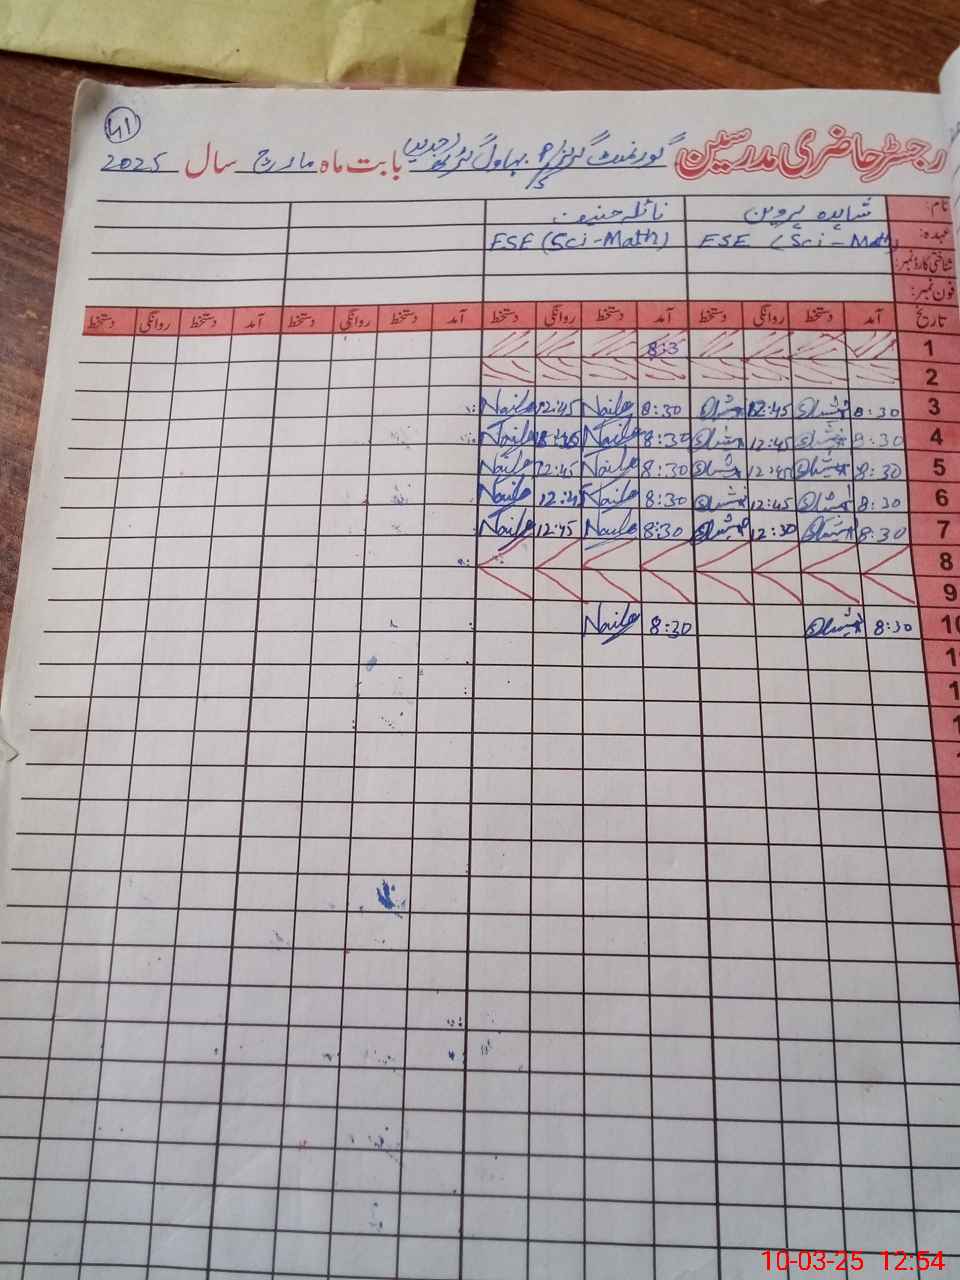 41
رجسٹر حاضری مدرسین گورنمنٹ گرلز P/S بہاول گڑھ (جدید) بابت ماہ مارچ سال 2025
نام: شاہدہ پروین نائلہ حنیف
عہدہ: ESE (Sci-Math) ESE (Sci-Math)
شناختی کارڈ نمبر:
فون نمبر:
تاریخ آمد دستخط روانگی دستخط آمد دستخط روانگی دستخط آمد دستخط روانگی دستخط آمد دستخط روانگی دستخط
1 8:3
2
3 8:30 12:45 8:30 Naila 12:45 Naila
4 8:30 12:45 8:30 Naila Naila
5 8:30 12:45 8:30 Naila 12:45 Naila
6 8:30 12:45 8:30 Naila 12:45 Naila
7 8:30 12:30 8:30 Naila 12:45 Naila
8
9
10 8:30 8:30 Naila
10-03-25 12:54